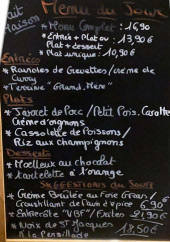 Fait
Maison
Menu du Jour
* Menu Complet : 16,90
* Entrée + Plat ou : 13,90 €
Plat + Dessert
* Plat unique : 10,90 €
Entrées
* Ravioles de Crevettes / crème de
Curry
* Terrine "Grand-Mère"
Plats
* Jarret de Porc / Petit Pois, Carotte
Crème d'oignons
* Cassolette de Poissons /
Riz aux champignons
Desserts
* Moelleux au chocolat
* Tartelette à l'orange
Suggestions du Jour
* Crème Brûlée au Foie Gras /
d'épice 6,90
* Entrecôte "VBF" / Frites 21,90 €
* Noix de St Jacques
A la Persillade 18,50 €